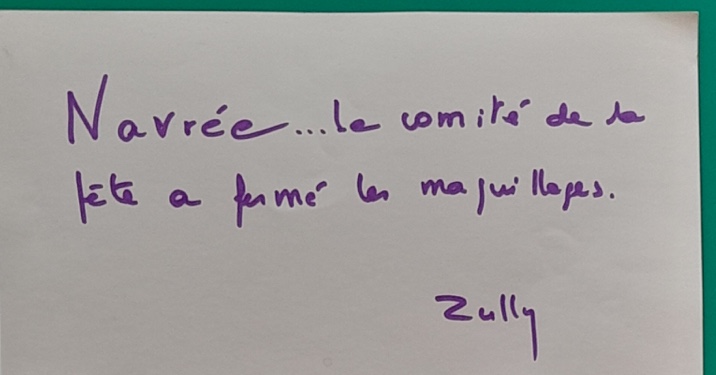 Navrée...le comité de la
fête a fermé les maquillages.
Zully